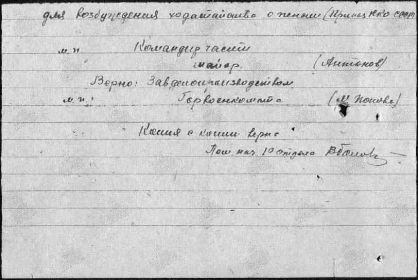 для возбуждения ходатайства о пенсии (
м.п. Командир части
майор (Антонов)
Верно: Завделопроизводством
м.п. Горвоенкомата (М. Попова)
Копия с копии верна
Пом нач. 1го отдела